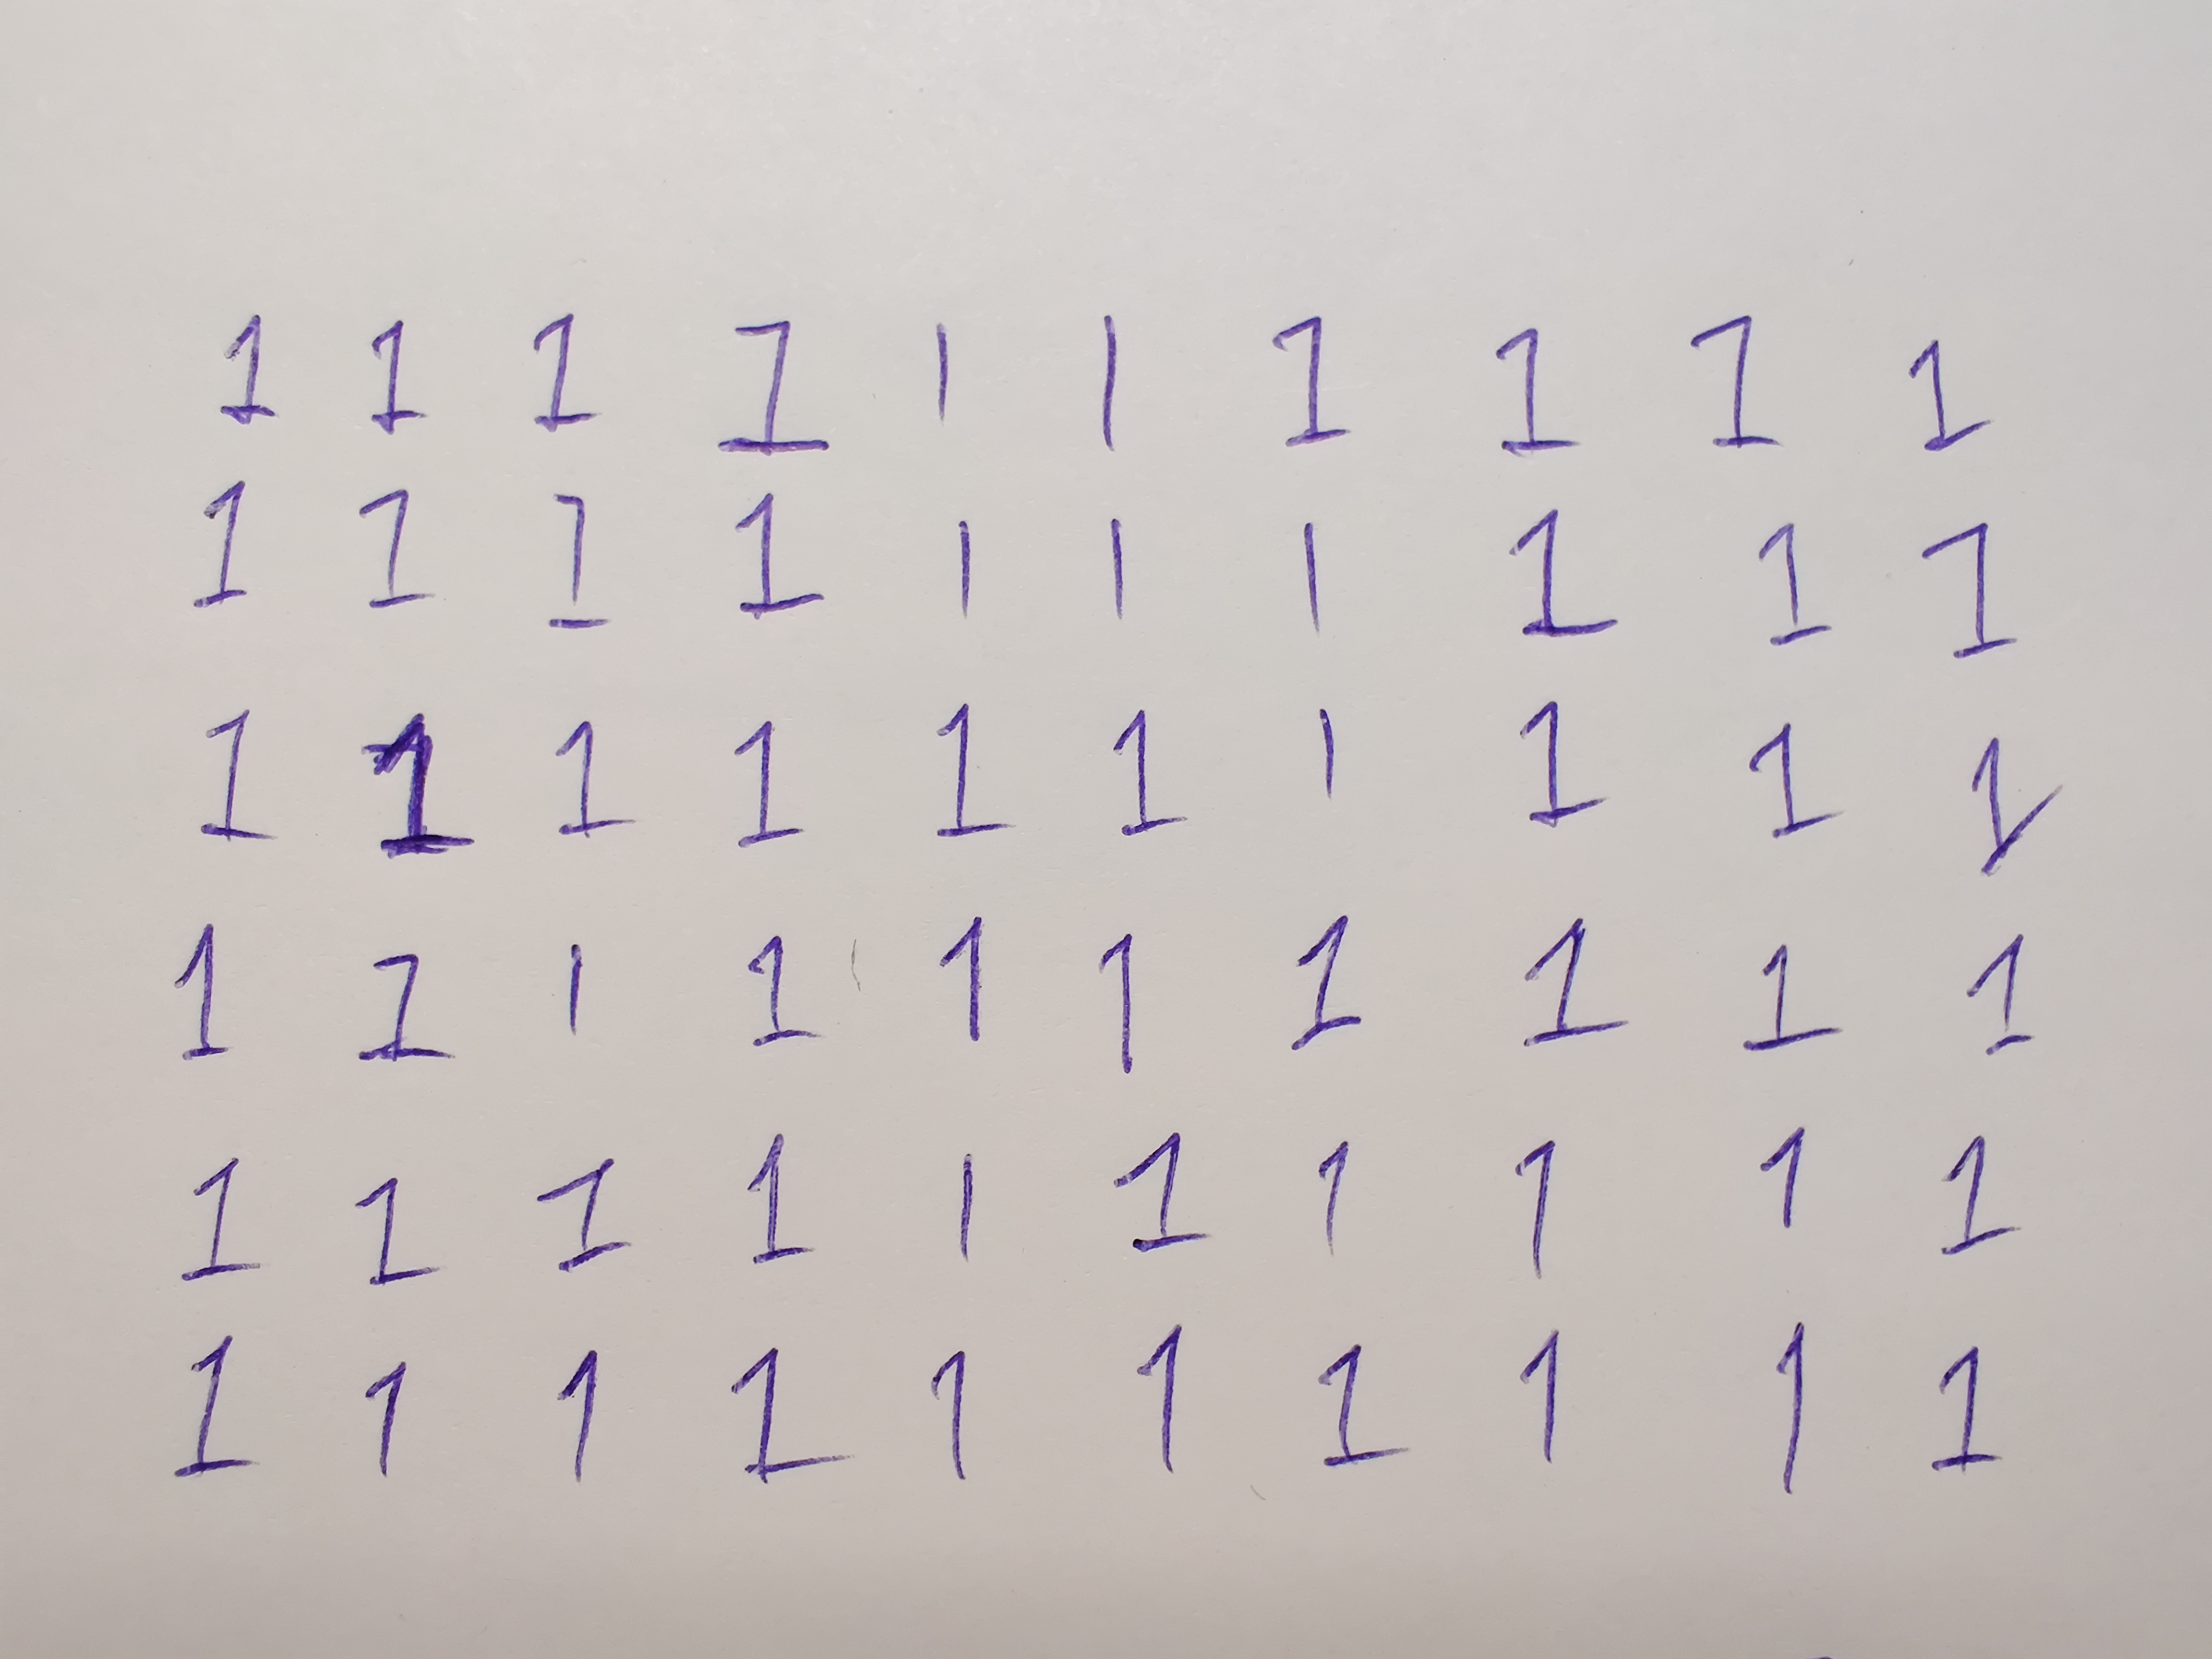 1 1 1 1 1 1 1 1 1 1
1 1 1 1 1 1 1 1 1 1
1 1 1 1 1 1 1 1 1 1
1 1 1 1 1 1 1 1 1 1
1 1 1 1 1 1 1 1 1 1
1 1 1 1 1 1 1 1 1 1